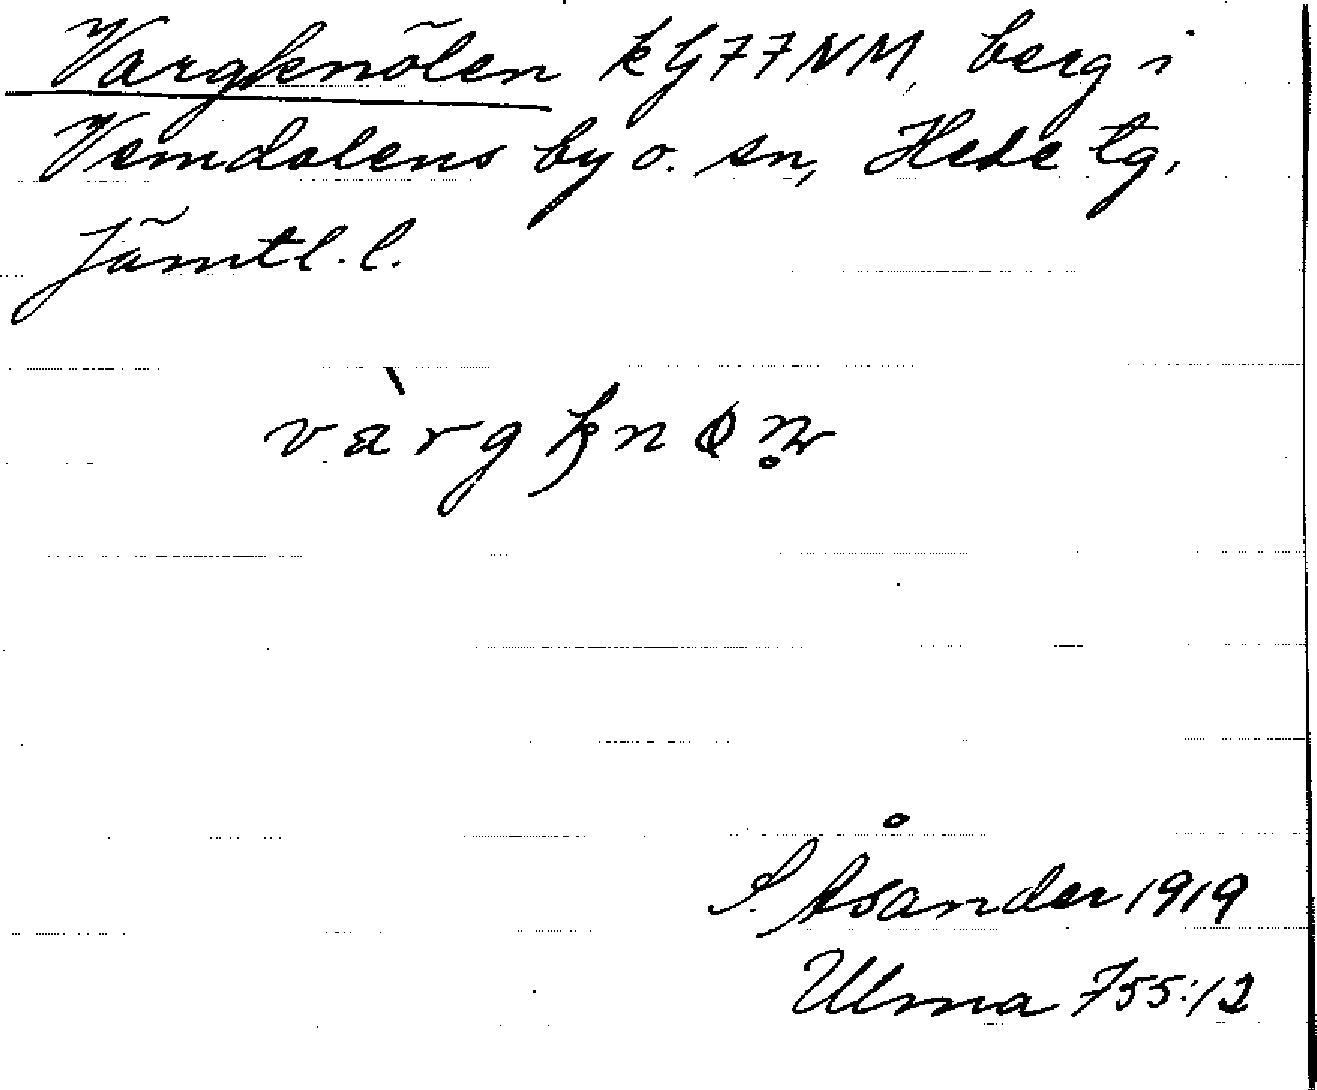 Vargknölen kG77NM, berg i
Vemdalens by o. sn, Hede tg,
Jämtl. l.
vàrgknøn̥
S. Åsander 1919
Ulma 755:12